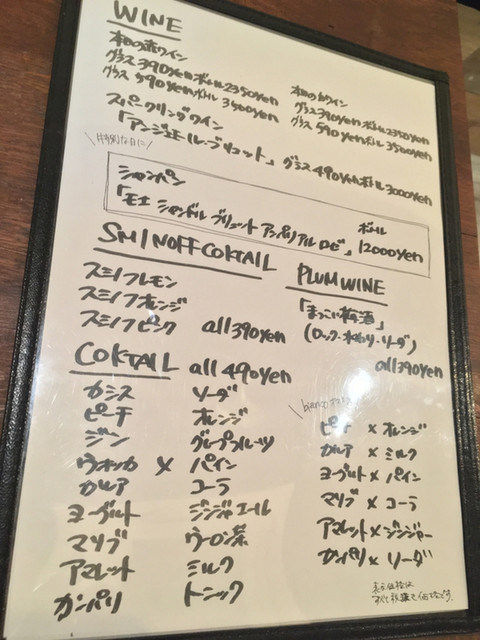 WINE
本日の赤ワイン
グラス 390yen ボトル 2350yen
グラス 590yen ボトル 3500yen
本日の白ワイン
グラス 390yen ボトル 2350yen
グラス 590yen ボトル 3500yen
スパークリングワイン
「アンジュエール・ブリュット」 グラス 490yen ボトル 3000yen
特別な日に
シャンパン
「モエ シャンドル ブリュート アンペリアル ロゼ」 ボトル 12000yen
SMINOFF COKTAIL
スミノフレモン
スミノフオレンジ
スミノフピンク all 390yen
PLUM WINE
「まっこい梅酒」
(ロック・水わり・ソーダ)
all 390yen
COKTAIL all 490yen
カシス ソーダ
ピーチ オレンジ
ジン グレープフルーツ
ウォッカ × パイン
カルア コーラ
ヨーグルト ジンジャエール
マリブ ウーロン茶
アマレット ミルク
カンパリ トニック
ピーチ × オレンジ
カルア × ミルク
ヨーグルト × パイン
マリブ × コーラ
アマレット × ジンジャー
カンパリ × ソーダ
表示価格は
すべて税抜き価格です。